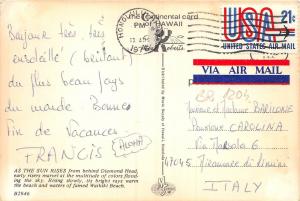 The Continental card
of HAWAII
HONOLULU
PM
1976
Roberts
USA 21c
UNITED STATES AIR MAIL
VIA AIR MAIL
Bonjour très très
ensoleillé (brûlant)
du plus beau pays
du monde Bonnes
Fin de Vacances.
FRANCIS
ALOHA
AS THE SUN RISES from behind Diamond Head,
early risers marvel at the multitude of colors flood-
ing the sky. Rising slowly, its bright rays warm
the beach and waters of famed Waikiki Beach.
B2946
CP 1204
Antoine BARILONE
Pensione CAROLINA
Via
47045 Miramare di Rimini
ITALY